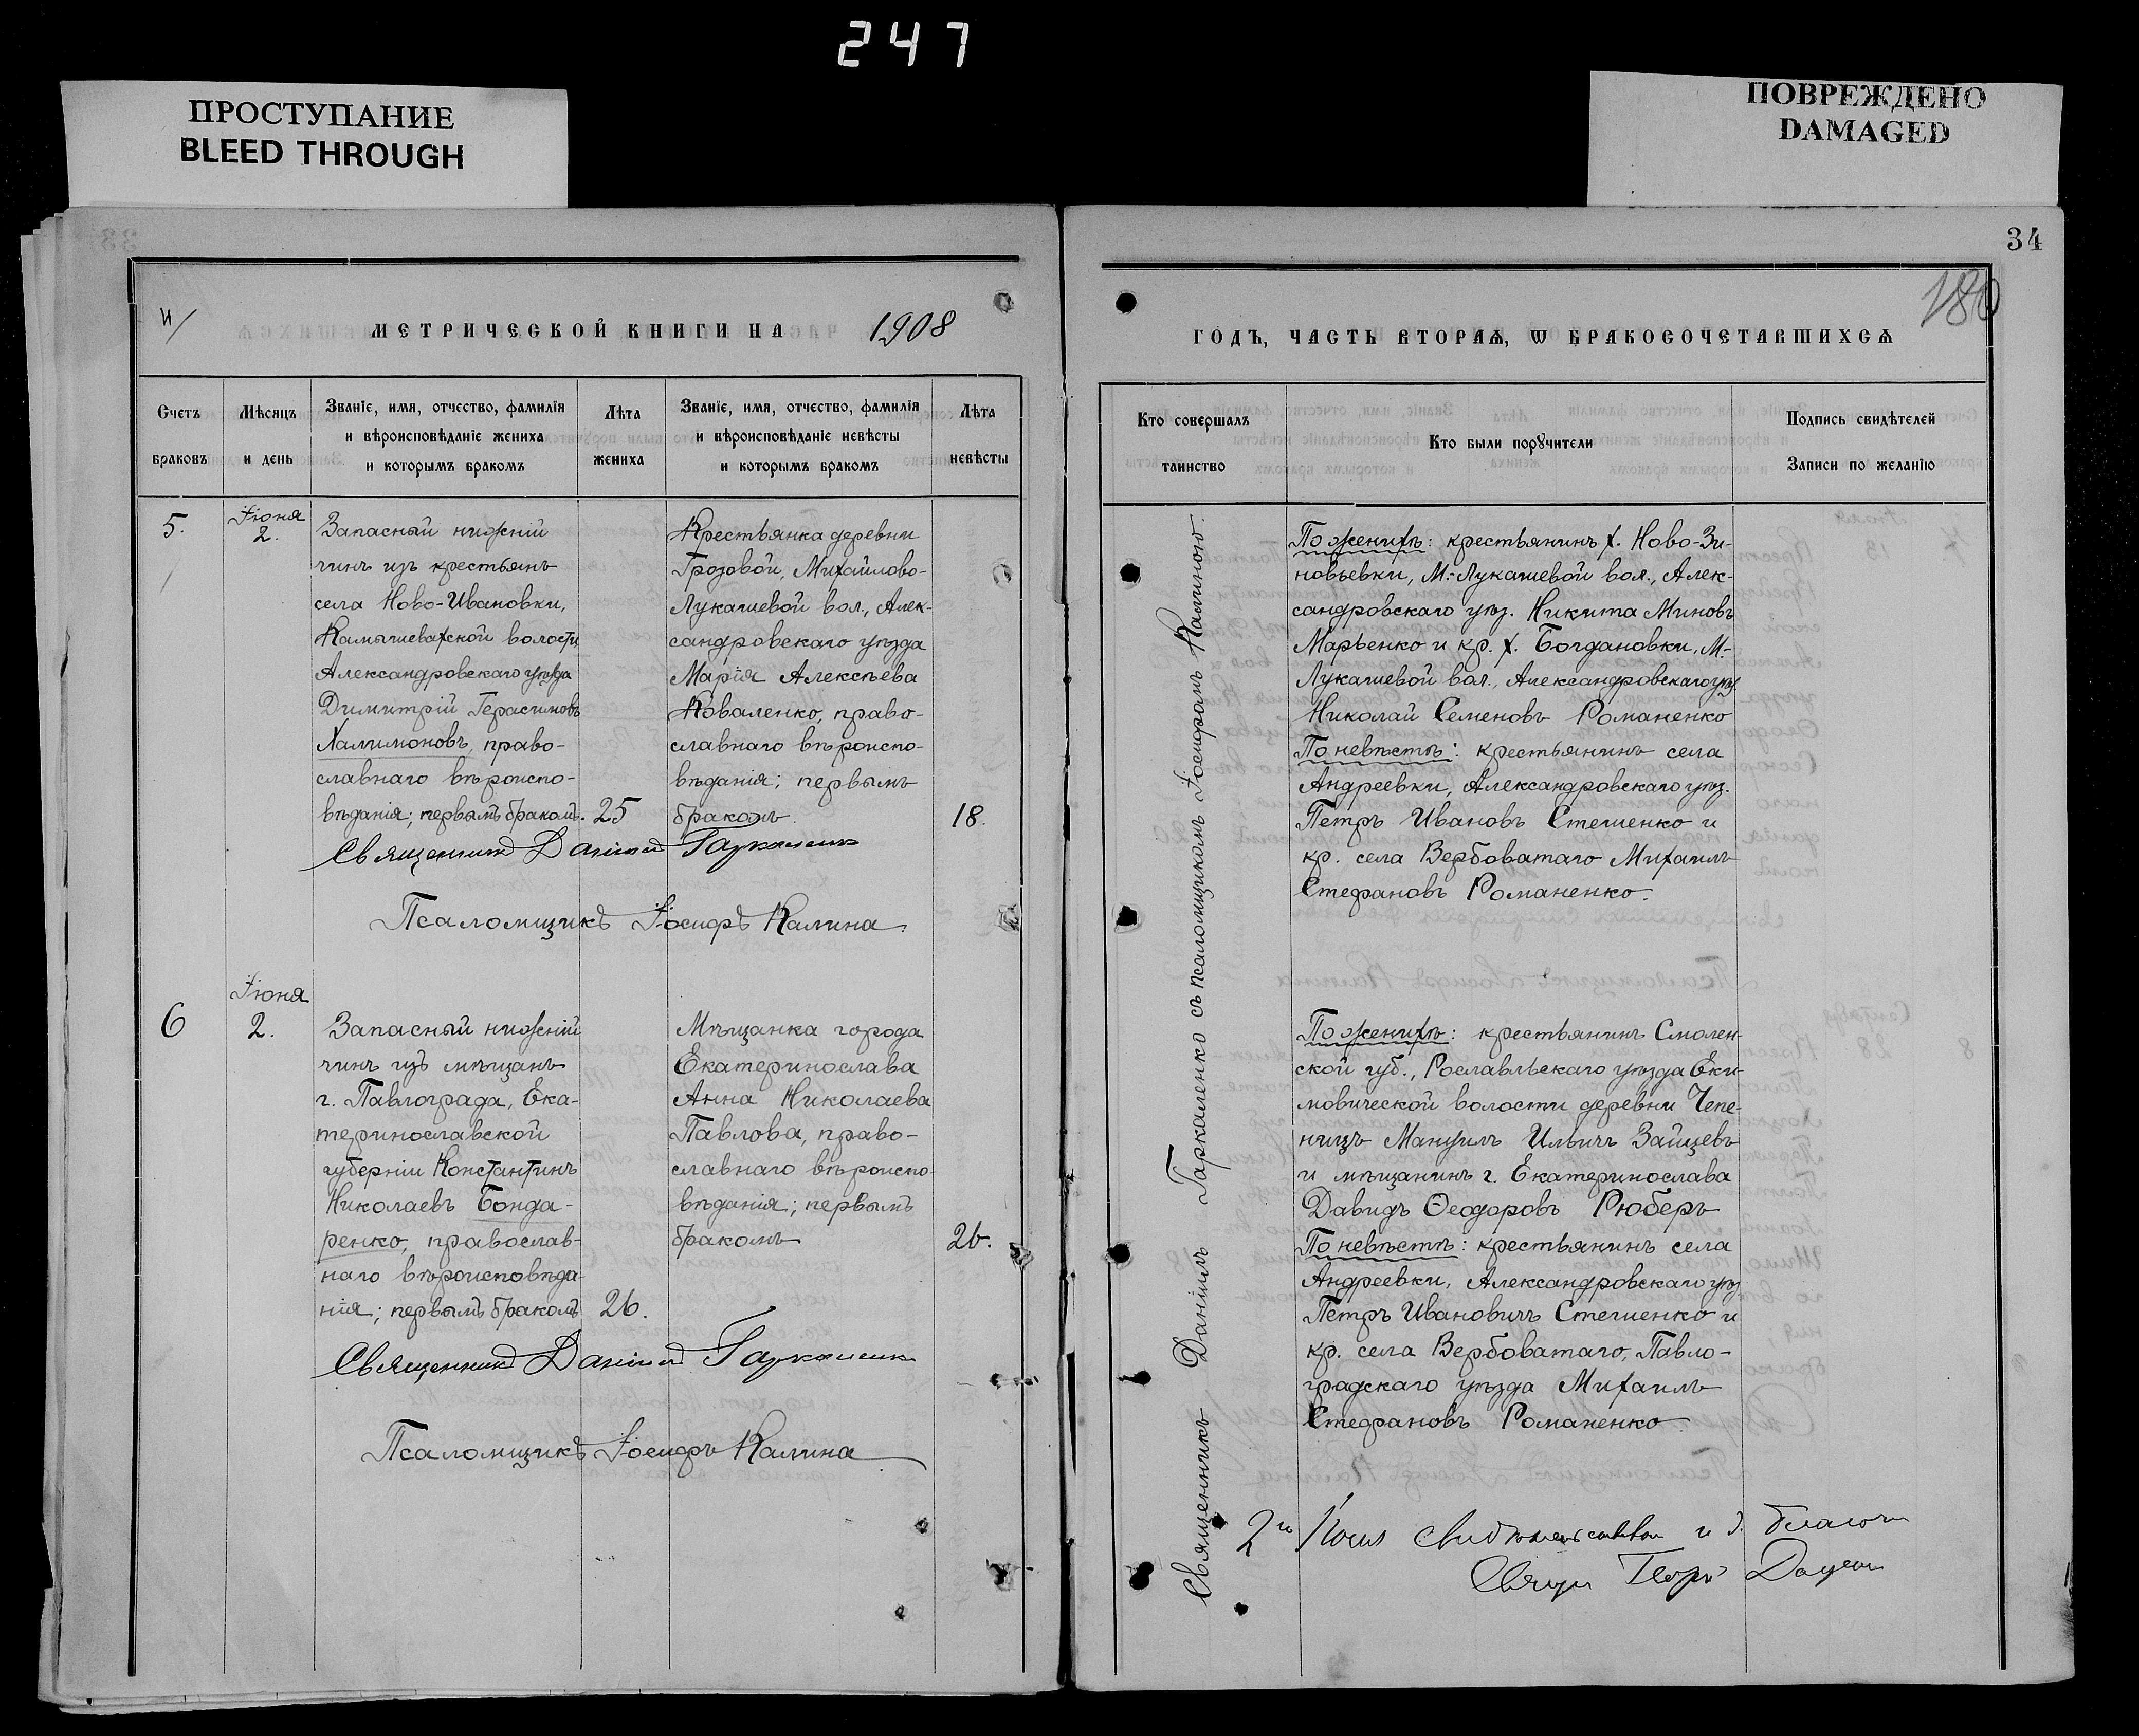 247
ПРОСТУПАНИЕ
BLEED THROUGH
ПОВРЕЖДЕНО
DAMAGED
34
180
МЕТРИЧЕСКОЙ КНИГИ НА 1908
ГОДЪ, ЧАСТЬ ВТОРАѦ, Ѡ БРАКОСОЧЕТАВШИХСѦ
Счетъ
браковъ
Мѣсяцъ
и день
Званіе, имя, отчество, фамилія
и вѣроисповѣданіе жениха
и которымъ бракомъ
Лѣта
жениха
Званіе, имя, отчество, фамилія
и вѣроисповѣданіе невѣсты
и которымъ бракомъ
Лѣта
невѣсты
Кто совершалъ
таинство
Кто были порꙋчители
Подпись свидѣтелей
Записи по желанію
5.
Іюня
2.
Запасный нижній
чинъ изъ крестьянъ
села Ново-Ивановки,
Камышеватской волости
Александровскаго уѣзда
Димитрій Герасимовъ
Халимоновъ, право-
славнаго вѣроиспо-
вѣданія; первымъ бракомъ.
25
Крестьянка деревни
Грозовой, Михайлово-
Лукашевой вол., Алек-
сандровскаго уѣзда
Марія Алексѣева
Коваленко, право-
славнаго вѣроиспо-
вѣданія; первымъ
бракомъ.
18.
Священникъ Даніилъ Гаркаленко
Псаломщикъ Іосифъ Калина.
По женихѣ: крестьянинъ х. Ново-Зи-
новьевки, М.-Лукашевой вол., Алек-
сандровскаго уѣз. Никита Миновъ
Марьенко и кр. х. Богдановки, М-
Лукашевой вол., Александровскаго уѣз.
Николай Семеновъ Романенко
По невѣстѣ: крестьянинъ села
Андреевки, Александровскаго уѣз.
Петръ Ивановъ Стешенко и
кр. села Вербоватаго Михаилъ
Стефановъ Романенко.
6
Іюня
2.
Запасный нижній
чинъ изъ мѣщанъ
г. Павлограда, Ека-
теринославской
губерніи Константинъ
Николаевъ Бонда-
ренко, православ-
наго вѣроисповѣда-
нія; первымъ бракомъ
26.
Мѣщанка города
Екатеринослава
Анна Николаева
Павлова, право-
славнаго вѣроиспо-
вѣданія; первымъ
бракомъ
26.
Священникъ Даніилъ Гаркаленко
Псаломщикъ Іосифъ Калина
По женихѣ: крестьянинъ Смолен-
ской губ., Рославльскаго уѣзда Еки-
мовической волости деревни Чепе-
ницъ Мануилъ Ильичъ Зайцевъ
и мѣщанинъ г. Екатеринослава
Давидъ Ѳеодоровъ Рюберъ
По невѣстѣ: крестьянинъ села
Андреевки, Александровскаго уѣз
Петръ Ивановичъ Стешенко и
кр. села Вербоватаго, Павло-
градскаго уѣзда Михаилъ
Стефановъ Романенко
Священникъ Даніилъ Гаркаленко съ псаломщикомъ Іосифомъ Калиною.